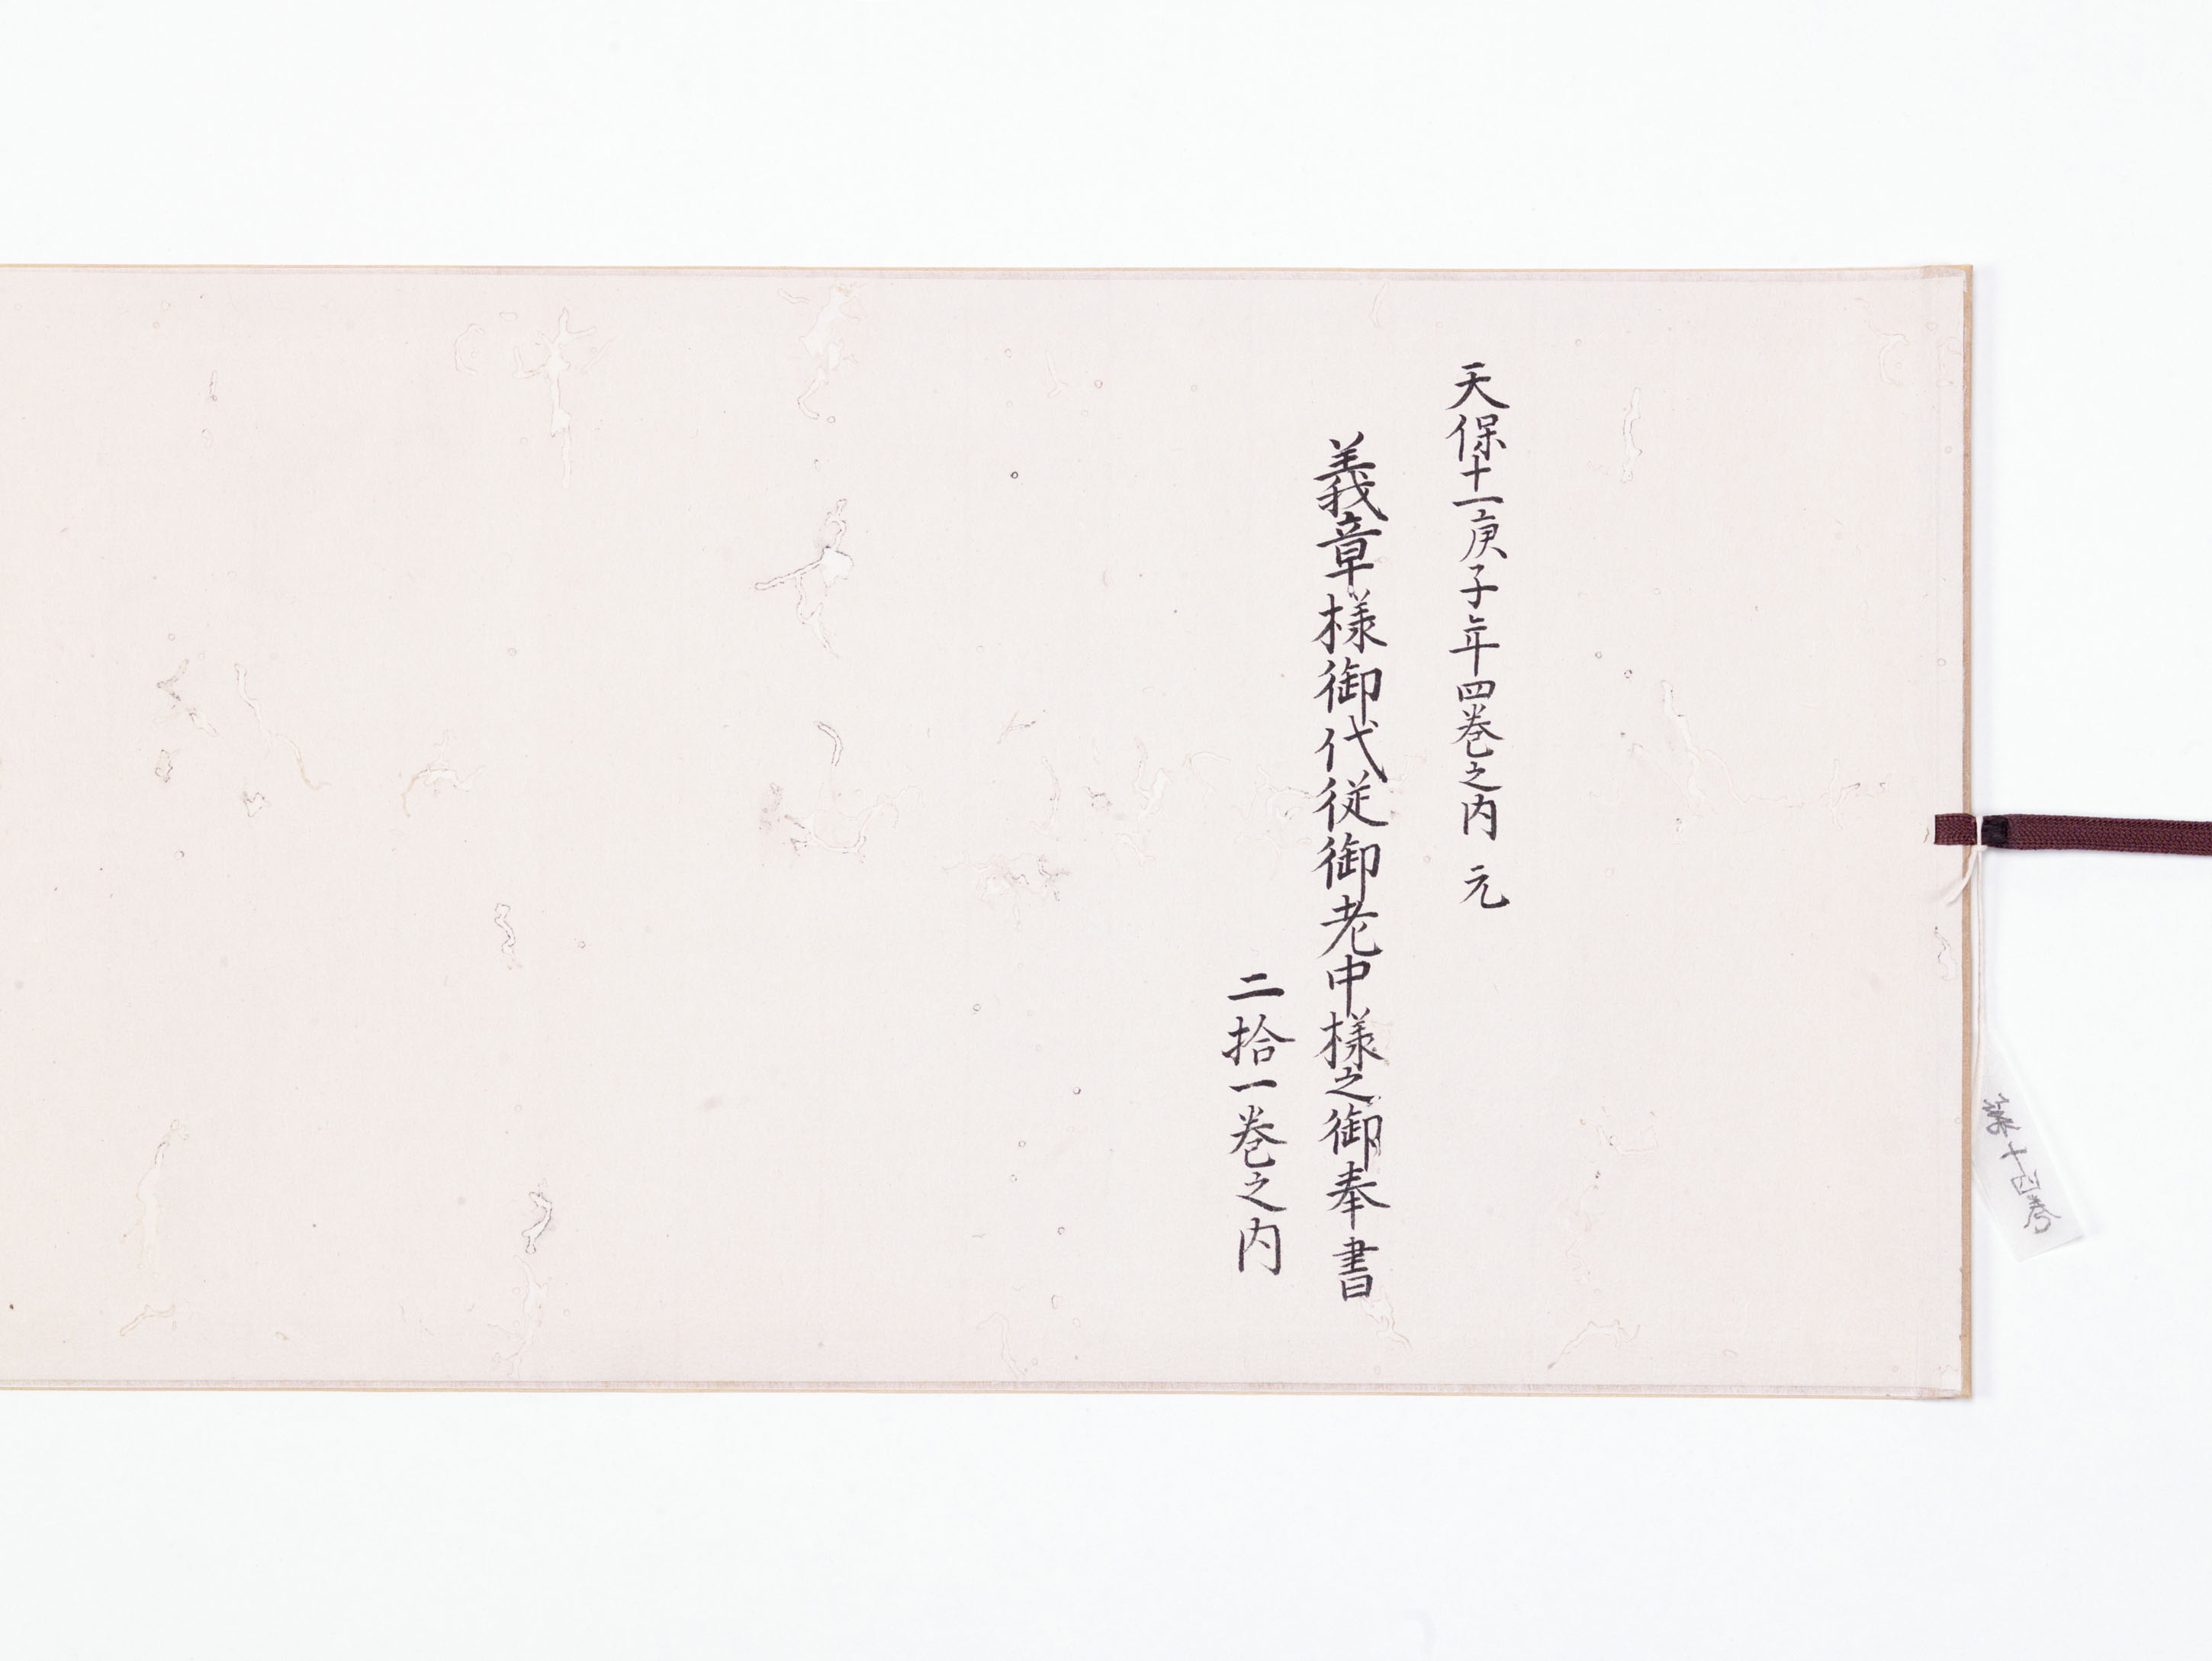 天保十一庚子年四巻之内 元
義章様御代従御老中様之御奉書
二拾一巻之内
第十四巻